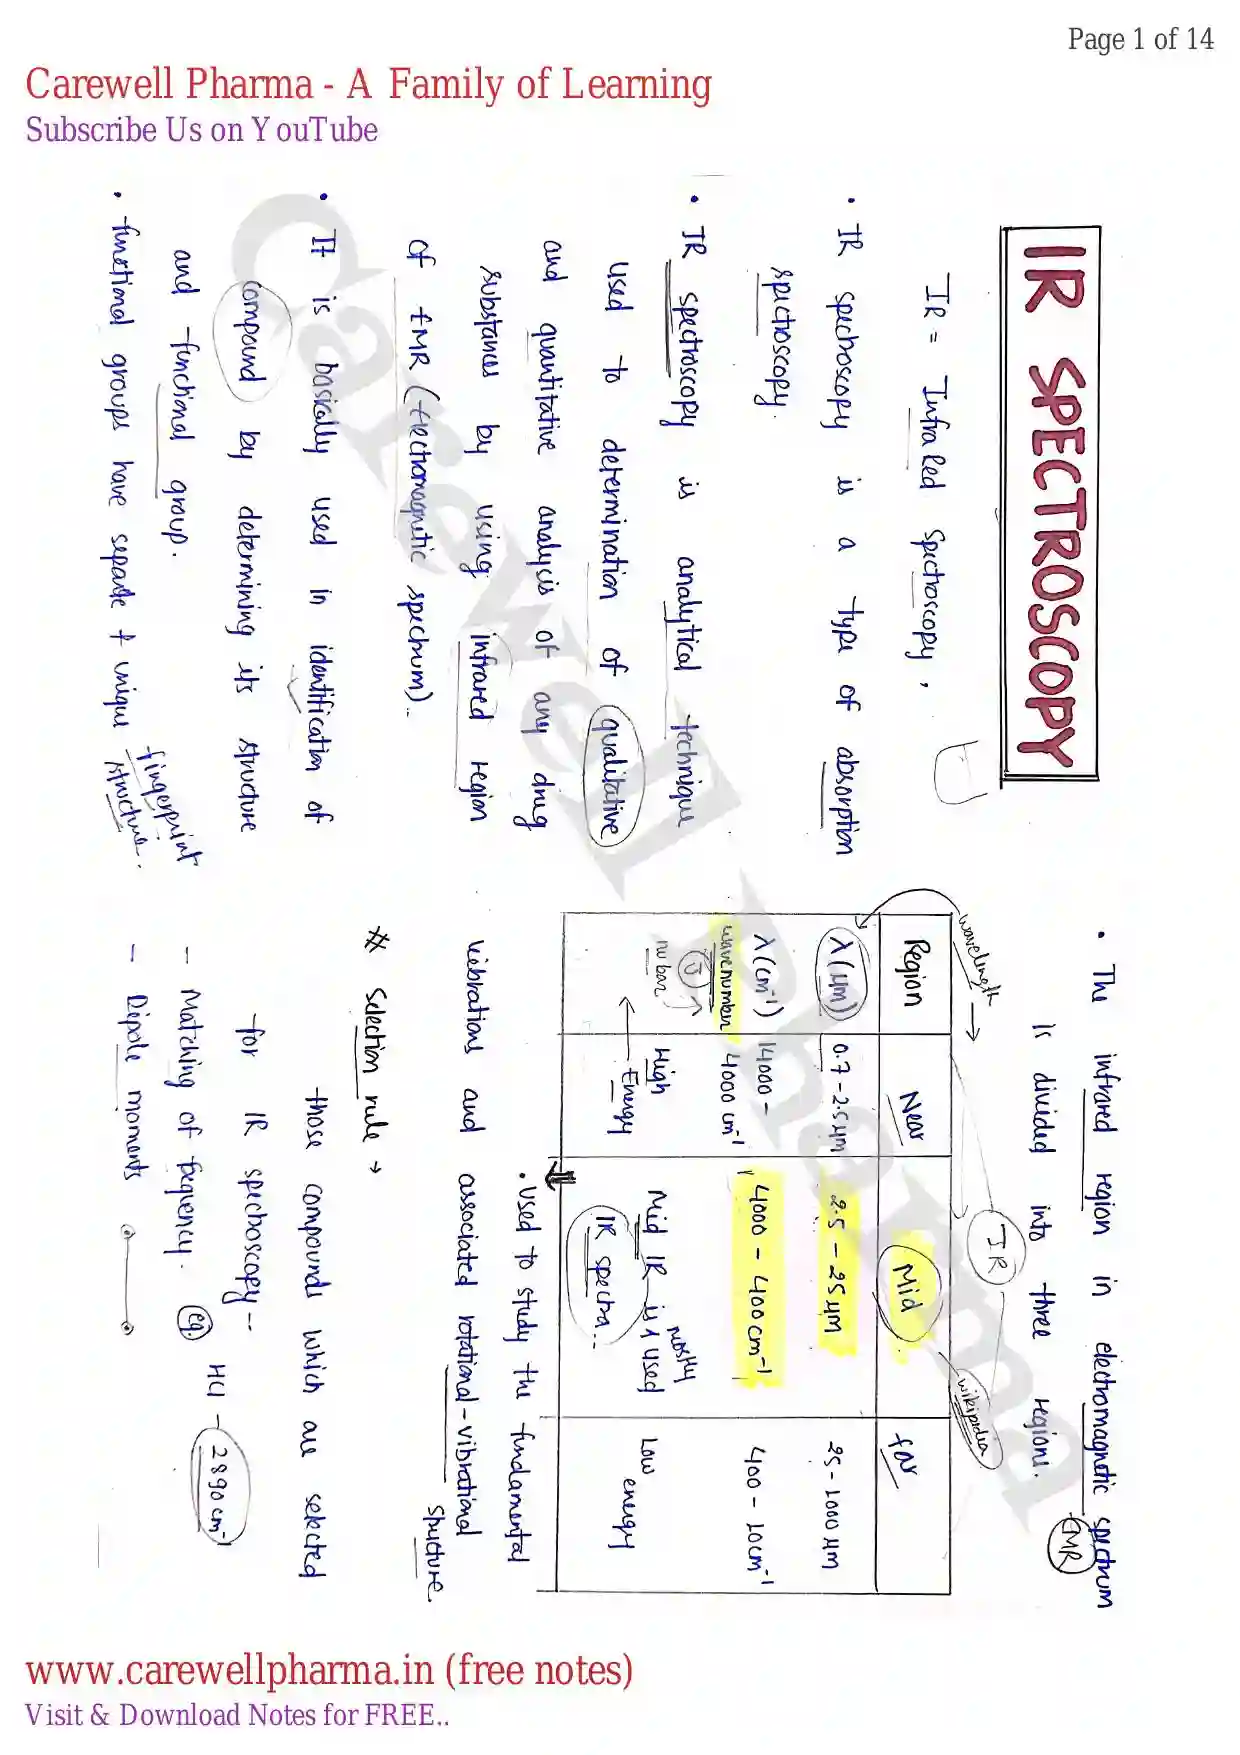 Page 1 of 14
Carewell Pharma - A Family of Learning
Subscribe Us on YouTube
IR SPECTROSCOPY
IR = Infrared Spectroscopy,
• IR spectroscopy is a type of absorption
spectroscopy.
• IR spectroscopy is analytical technique
used to determination of qualitative
and quantitative analysis of any drug
substances by using infrared region
of EMR (Electromagnetic spectrum).
• It is basically used in identification of
compound by determining its structure
and functional group.
• functional groups have separate & unique structure..
fingerprint
• The infrared region in electromagnetic spectrum
EMR
is divided into three regions.
IR
wavelength →
wikipedia
Region Near Mid far
λ(μm) 0.7-2.5μm 2.5 - 25μm 25-1000μm
λ(cm⁻¹) 14000 - 4000 - 400cm⁻¹ 400 - 10cm⁻¹
wavenumber 4000 cm⁻¹
ν̅
nu bar
High Energy
Mid IR is mostly used
IR spectra...
Low energy
• Used to study the fundamental
vibrations and associated rotational-vibrational
structure.
# Selection rule →
those compounds which are selected
for IR spectroscopy--
- Matching of fequency. eg. HCl - 2890cm⁻¹
- Dipole moments
Carewell Pharma
www.carewellpharma.in (free notes)
Visit & Download Notes for FREE..